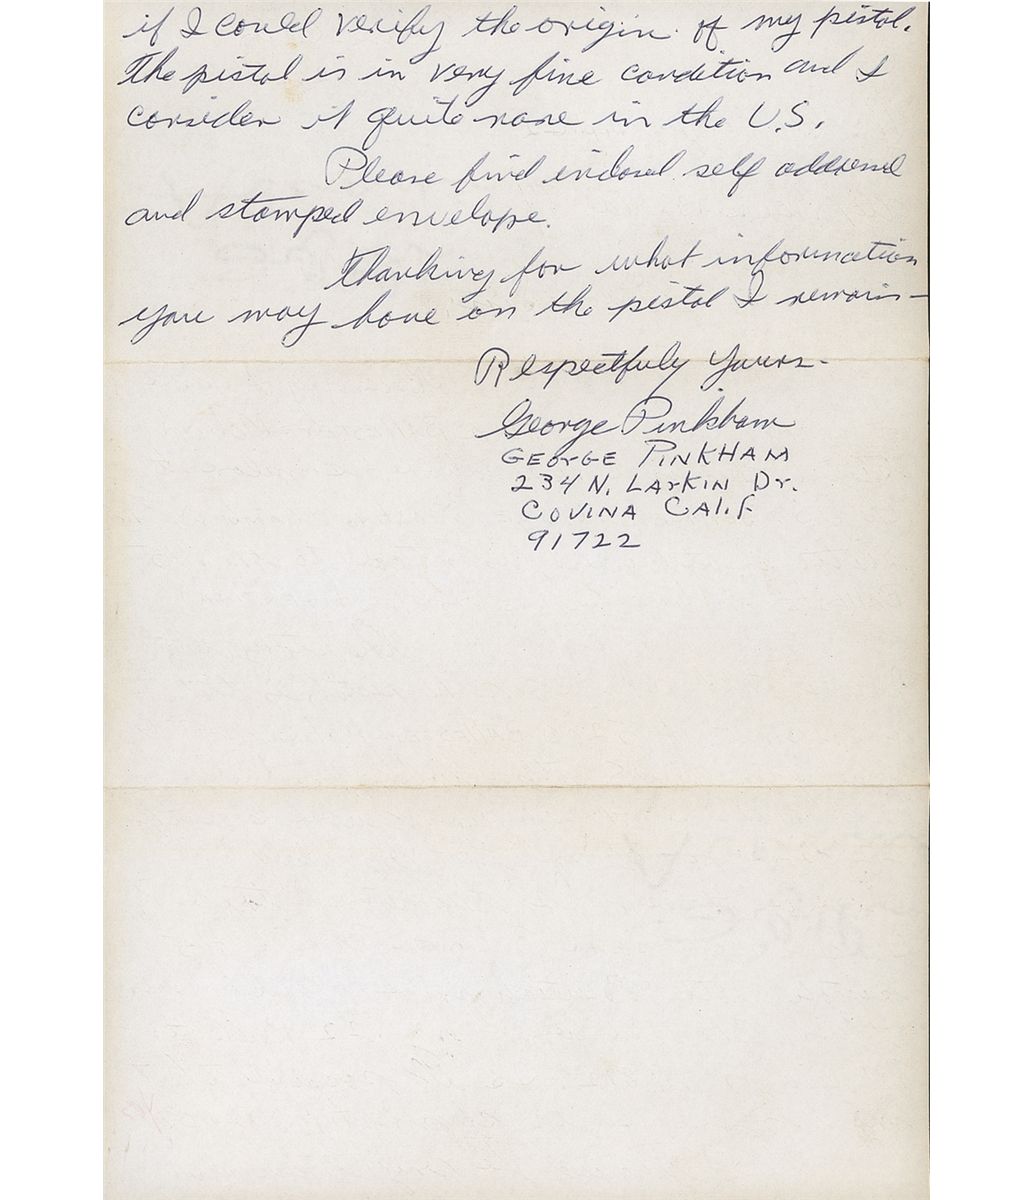 if I could verify the origin of my pistol.
The pistol is in very fine condition and I
consider it quite rare in the U.S.
Please find inclosed self addressed
and stamped envelope.
Thanking for what information
you may have on the pistol I remain -
Respectfuly Yours -
George Pinkham
GEORGE PINKHAM
234 N. LARKIN Dr.
COVINA CALIF
91722